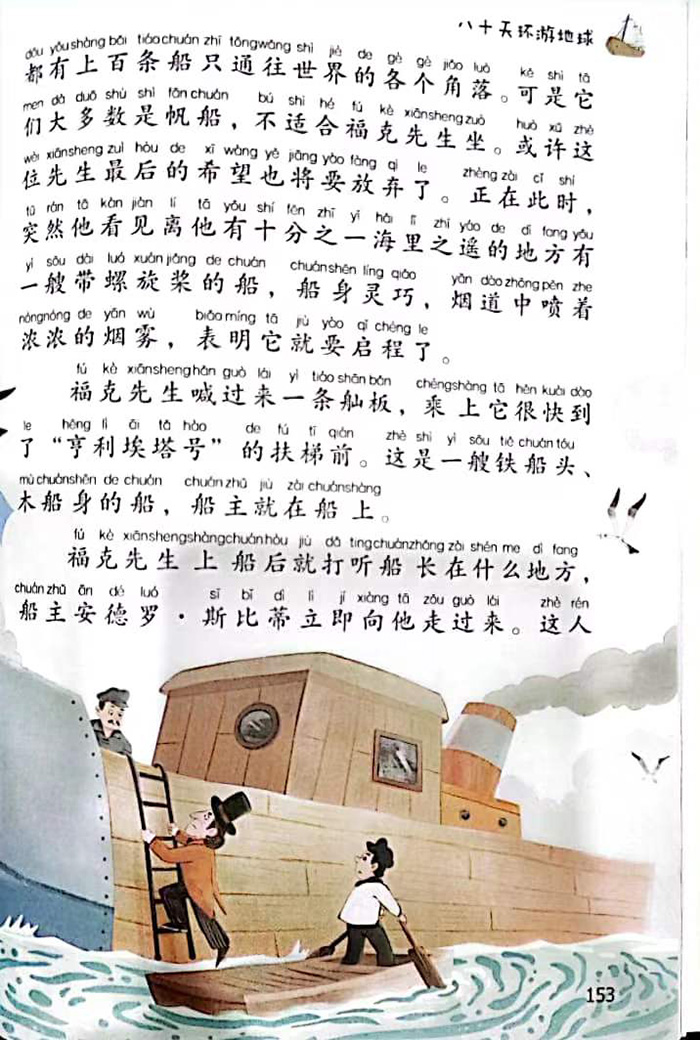 八十天环游地球
dōu yǒu shàng bǎi tiáo chuán zhī tōng wǎng shì jiè de gè gè jiǎo luò kě shì tā
都有上百条船只通往世界的各个角落。可是它
men dà duō shù shì fān chuán bú shì hé fú kè xiān sheng zuò huò xǔ zhè
们大多数是帆船，不适合福克先生坐。或许这
wèi xiān sheng zuì hòu de xī wàng yě jiāng yào fàng qì le zhèng zài cǐ shí
位先生最后的希望也将要放弃了。正在此时，
tū rán tā kàn jiàn lí tā yǒu shí fēn zhī yī hǎi lǐ zhī yáo de dì fang yǒu
突然他看见离他有十分之一海里之遥的地方有
yì sōu dài luó xuán jiǎng de chuán chuán shēn líng qiǎo yān dào zhōng pēn zhe
一艘带螺旋桨的船，船身灵巧，烟道中喷着
nóng nóng de yān wù biǎo míng tā jiù yào qǐ chéng le
浓浓的烟雾，表明它就要启程了。
fú kè xiān sheng hǎn guò lái yì tiáo shān bǎn chéng shàng tā hěn kuài dào
福克先生喊过来一条舢板，乘上它很快到
le hēng lì āi tǎ hào de fú tī qián zhè shì yì sōu tiě chuán tóu
了“亨利埃塔号”的扶梯前。这是一艘铁船头、
mù chuán shēn de chuán chuán zhǔ jiù zài chuán shàng
木船身的船，船主就在船上。
fú kè xiān sheng shàng chuán hòu jiù dǎ ting chuán zhǎng zài shén me dì fang
福克先生上船后就打听船长在什么地方，
chuán zhǔ ān dé luó sī bǐ dì lì jí xiàng tā zǒu guò lái zhè rén
船主安德罗·斯比蒂立即向他走过来。这人
153